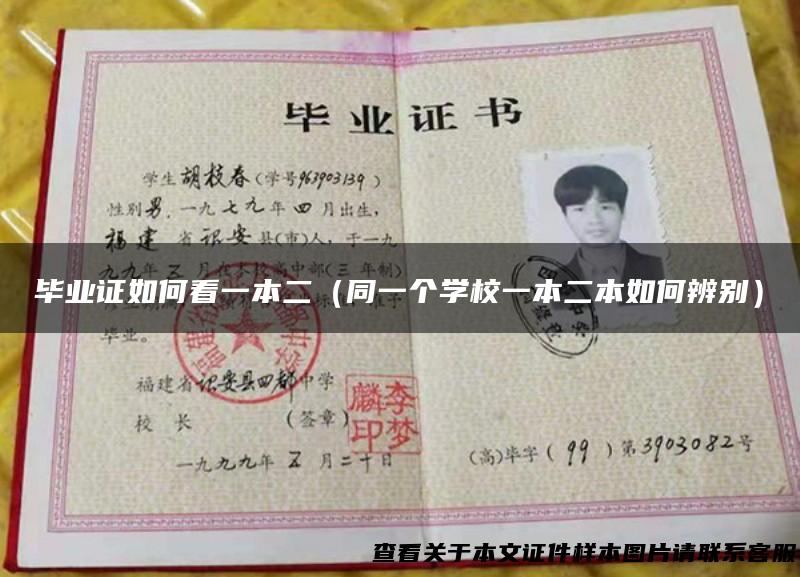 毕业证书
学生胡枝春(学号963903139)
性别男,一九七九年四月出生,
福建省诏安县(市)人,于一九
九九年五月在本校高中部(三年制)
毕业证如何看一本二（同一个学校一本二本如何辨别）
毕业。
福建省诏安县四都中学
校长(签章)
李梦麟印
一九九九年五月二十日
(高)毕字(99)第3903082号
查看关于本文证件样本图片请联系客服